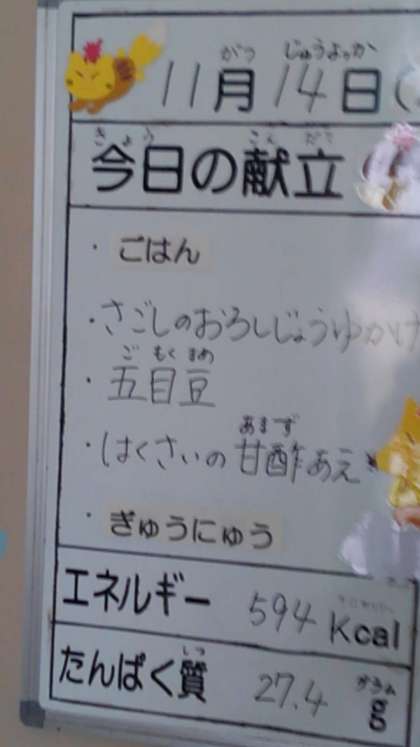 がつ じゅうよっか
11月14日(
きょう こんだて
今日の献立
・ごはん
・さごしのおろしじょうゆかけ
ごもくまめ
・五目豆
あまず
・はくさいの甘酢あえ
・ぎゅうにゅう
エネルギー 594 Kcal
しつ グラム
たんぱく質 27.4 g